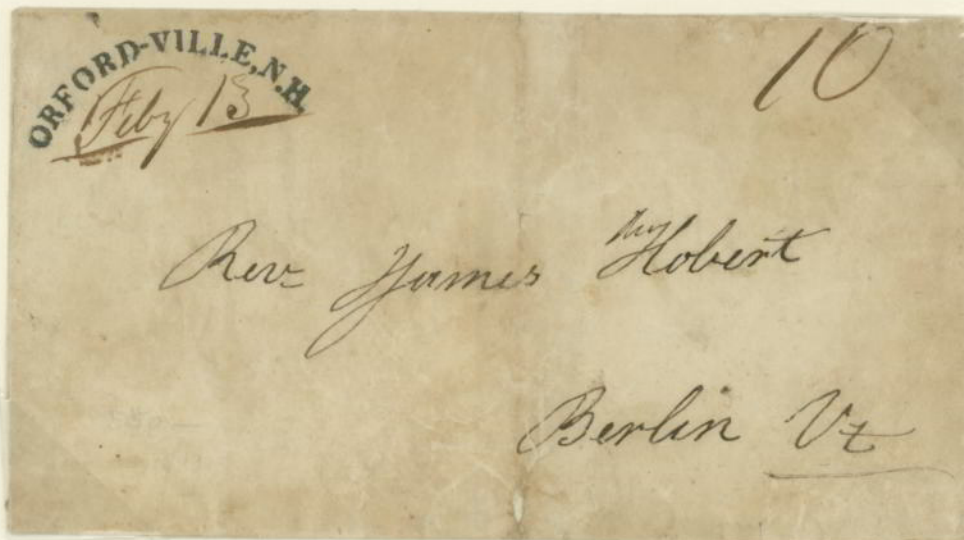 ORFORD-VILLE, N.H.
Feby 13
10
Rev James Hobert
Berlin Vt